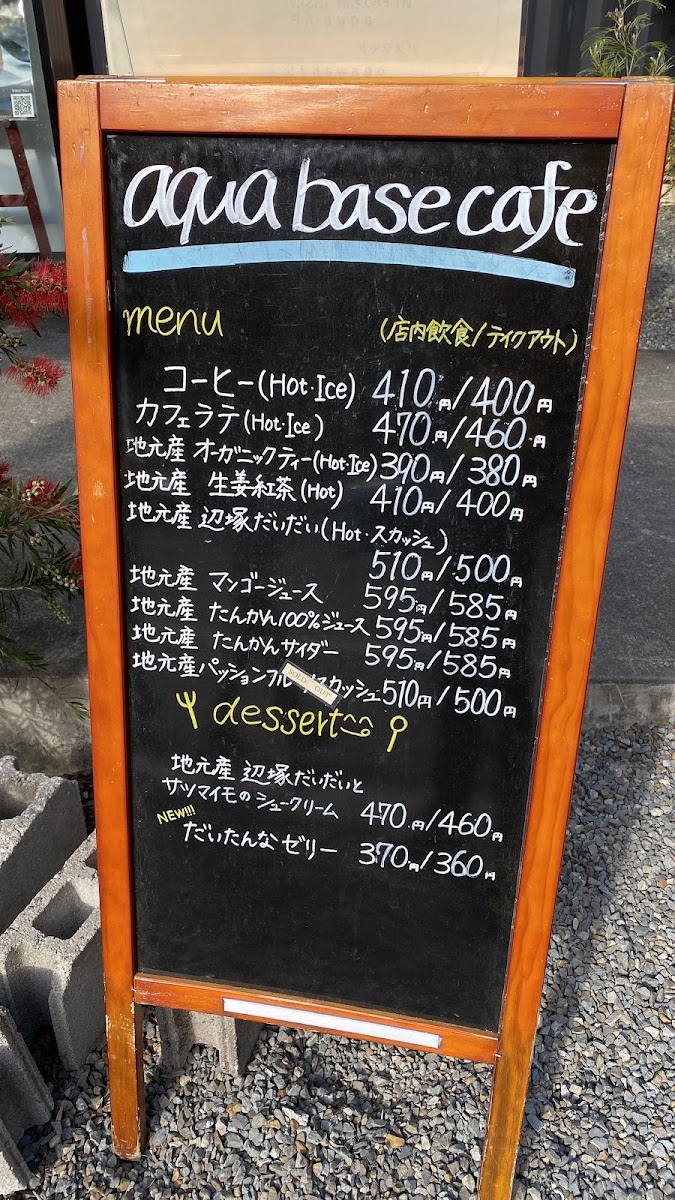 aqua base cafe
menu
(店内飲食/テイクアウト)
コーヒー(Hot・Ice) 410円/400円
カフェラテ(Hot・Ice) 470円/460円
地元産 オーガニックティー(Hot・Ice) 390円/380円
地元産 生姜紅茶(Hot) 410円/400円
地元産 辺塚だいだい(Hot・スカッシュ)
510円/500円
地元産 マンゴージュース 595円/585円
地元産 たんかん100%ジュース 595円/585円
地元産 たんかんサイダー 595円/585円
地元産パッションフルーツスカッシュ 510円/500円
SOLD OUT
dessert
地元産 辺塚だいだいと
サツマイモのシュークリーム 470円/460円
NEW!!!
だいたんなゼリー 370円/360円